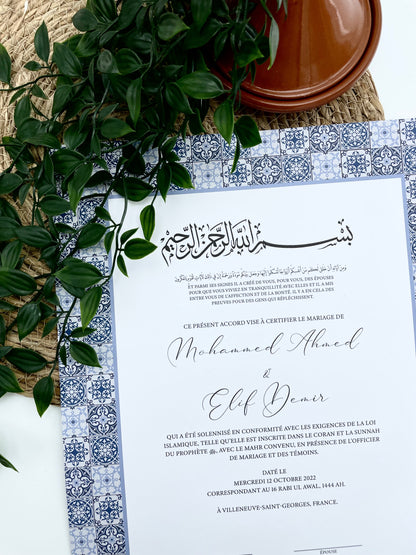 بسم الله الرحمن الرحيم
ET PARMI SES SIGNES IL A CRÉÉ DE VOUS, POUR VOUS, DES ÉPOUSES
POUR QUE VOUS VIVIEZ EN TRANQUILLITÉ AVEC ELLES ET IL A MIS
ENTRE VOUS DE L'AFFECTION ET DE LA BONTÉ. IL Y A EN CELA DES
PREUVES POUR DES GENS QUI RÉFLÉCHISSENT.
CE PRÉSENT ACCORD VISE À CERTIFIER LE MARIAGE DE
Mohammed Ahmed
&
Elif Demir
QUI A ÉTÉ SOLENNISÉ EN CONFORMITÉ AVEC LES EXIGENCES DE LA LOI
ISLAMIQUE, TELLE QU'ELLE EST INSCRITE DANS LE CORAN ET LA SUNNAH
DU PROPHÈTE ﷺ, AVEC LE MAHR CONVENU, EN PRÉSENCE DE L'OFFICIER
DE MARIAGE ET DES TÉMOINS.
DATÉ LE
MERCREDI 12 OCTOBRE 2022
CORRESPONDANT AU 16 RABI UL AWAL, 1444 AH.
À VILLENEUVE-SAINT-GEORGES, FRANCE.
ÉPOUSE